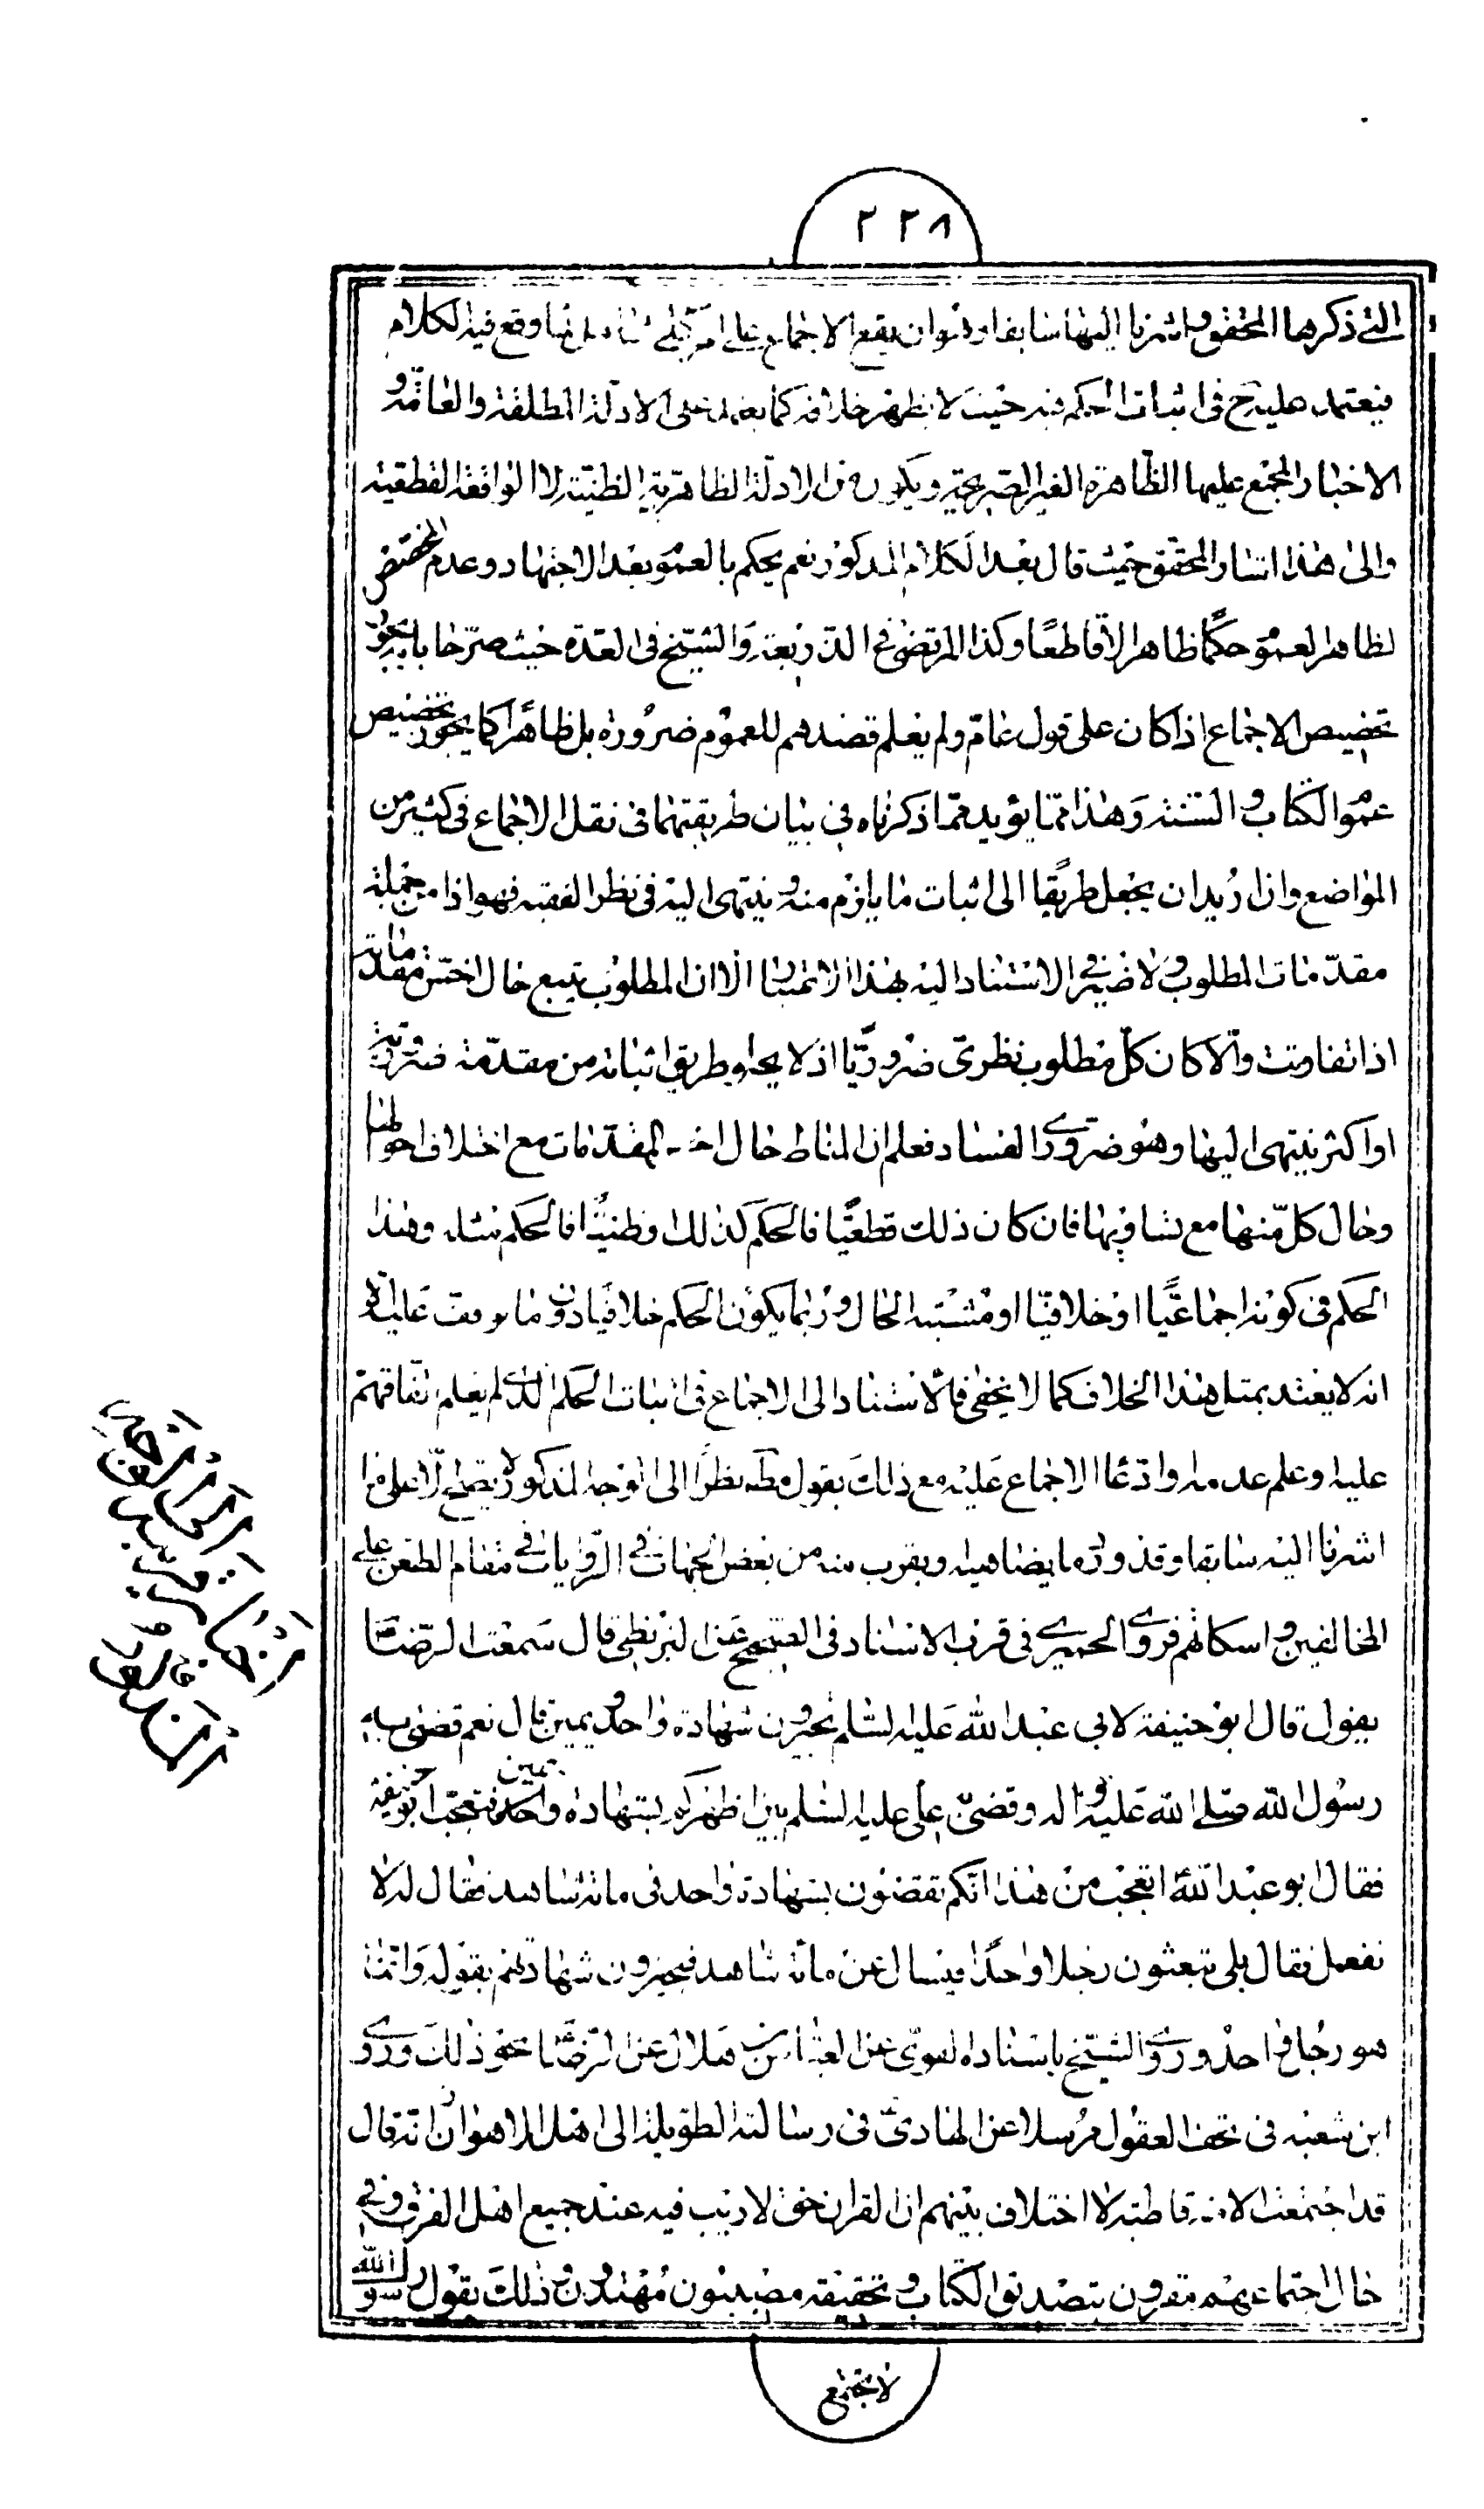 ٢٢٨
التي ذكرها المحقق واشرنا اليها سابقا وهو ان يقع الاجماع على امر كلي وقع فيه الكلام
فيعتمد عليه ح في اثبات الحكم فيه حيث لا يظهر خلافه كما يعتمد على الادلة المطلقة والعامة و
الاخبار المجمع عليها الظاهرة الغير الصريحة ويكون من الادلة الظاهرية الظنية لا الواقعة القطعية
والى هذا اشار المحقق حيث قال بعد الكلام المذكور نعم يحكم بالعموم بعد الاجتهاد وعدم المخصص
لظاهر العموم حكما ظاهرا لا قاطعا وكذا المرتضى في الذريعة والشيخ في العدة حيث صرحا بانه يجوز
تخصيص الاجماع اذا كان على قول عام ولم يعلم قصدهم للعموم ضرورة بل ظاهرا كما يجوز تخصيص
عموم الكتاب والسنة وهذا مما يؤيد ما ذكرناه في بيان طريقتهما في نقل الاجماع في كثير من
المواضع وان اريد ان يجعل طريقا الى اثبات ما يلزم منه وينتهي اليه في نظر الفقيه فهو اذا من جملة
مقدمات المطلوب ولا ضير في الاستناد اليه بهذا الاعتبار الا ان المطلوب يتبع حال اخس مقدماته
اذا تفاوتت والا كان كل مطلوب نظري ضروريا اذ لا يخلو طريق اثباته من مقدمة ضرورية
او اكثر ينتهي اليها وهو ضروري الفساد فعلم ان المناط حال اخس المقدمات مع اختلاف احوالها
وحال كل منها مع تساويها فان كان ذلك قطعيا فالحكم كذلك او ظنيا فالحكم مثله وهذا
الحكم في كونه اجماعيا او خلافيا او مشتبه الحال وربما يكون الحكم خلافيا دون ما يوقف عليه الا
انه لا يعتد بمثل هذا الخلاف كما لا يخفى فالاستناد الى الاجماع في اثبات الحكم الذي لم يعلم اتفاقهم
عليه وعلم عدمه وادعاء الاجماع عليه مع ذلك بقول مطلق نظرا الى الوجه المذكور لا يصح الا على ما
اشرنا اليه سابقا وقد ورد ما يضاهيه ويقرب منه من بعض الجهات في الروايات في مقام الطعن على
المخالفين واسكاتهم فروى الحميري في قرب الاسناد في الصحيح عن البزنطي قال سمعت الرضا
يقول قال ابو حنيفة لابي عبد الله عليه السلام تجيزون شهادة واحد ويمين قال نعم قضى به
رسول الله صلى الله عليه واله وقضى علي عليه السلام بين اظهركم بشهادة واحد ويمين فتعجب ابو حنيفة
فقال ابو عبد الله اتعجب من هذا انكم تقضون بشهادة واحد في مائة شاهد فقال له لا
نفعل فقال بلى تبعثون رجلا واحدا فيسال عن مائة شاهد فتجيزون شهادتهم بقوله وانما
هو رجل واحد وروى الشيخ باسناده القوي عن العباس بن هلال عن الرضا نحو ذلك وروى
ابن شعبة في تحف العقول مرسلا عن الهادي في رسالته الطويلة الى اهل الاهواز انه قال
قد اجتمعت الامة قاطبة لا اختلاف بينهم ان القران حق لا ريب فيه عند جميع اهل الفرق وفي
حال اجتماعهم مقرون بتصديق الكتاب وتحقيقه مصيبون مهتدون وذلك بقول رسول الله
لا تجتمع